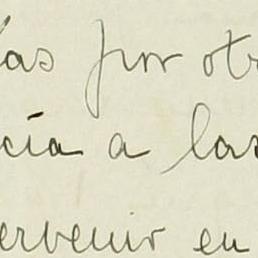 las por otr
cia a las
ervenir en